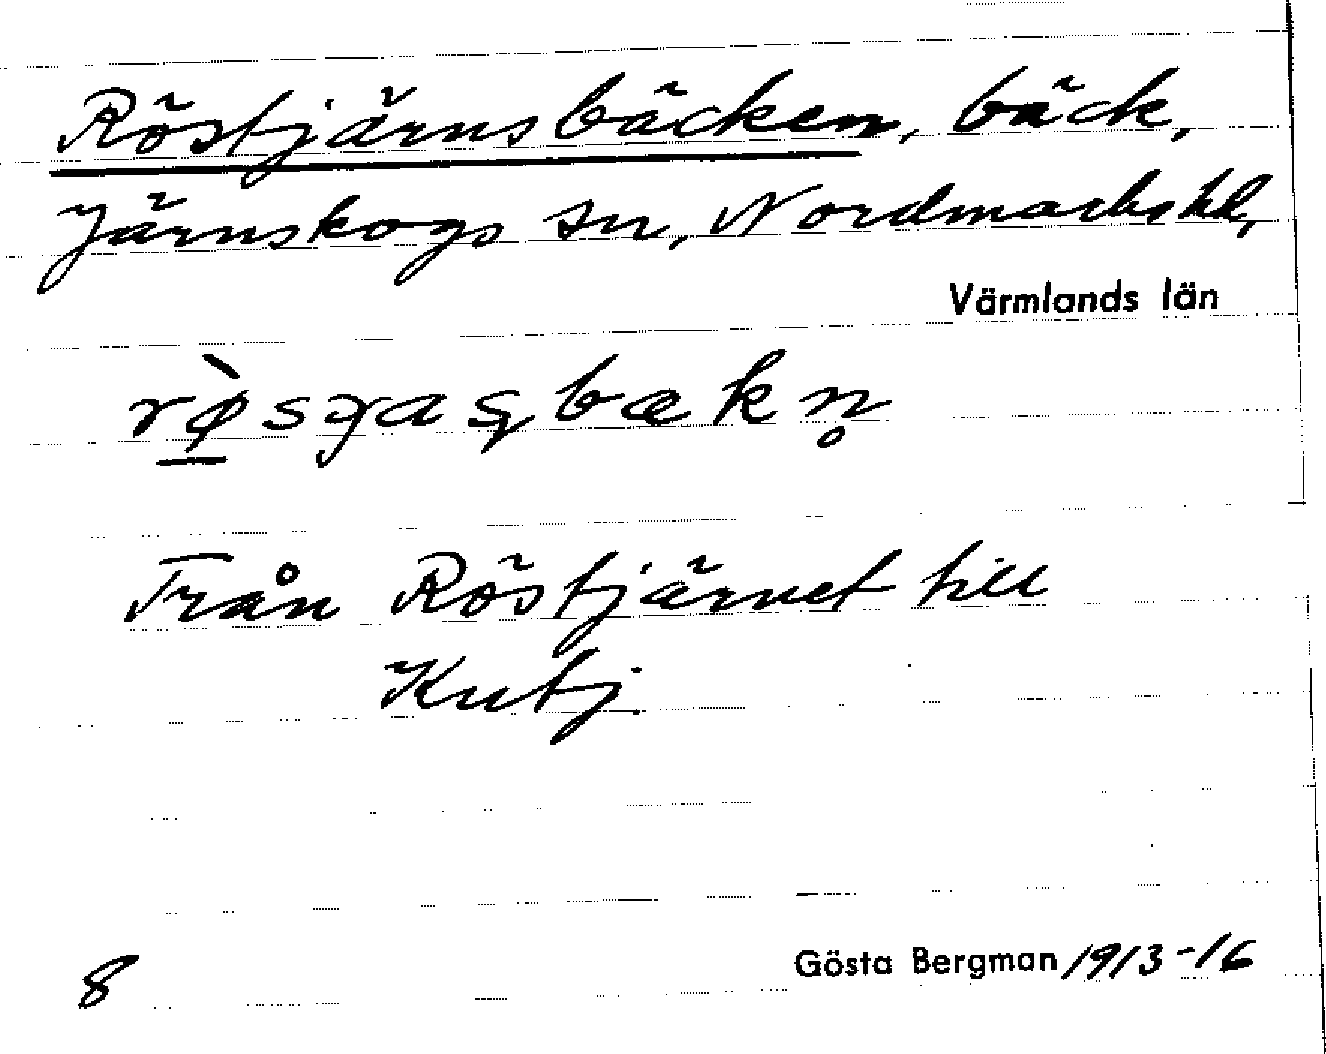 Röstjärnsbäcken, bäck,
Järnskogs sn, Nordmarks hd,
Värmlands län
Från Röstjärnet till
Kutj.
8
Gösta Bergman 1913-16